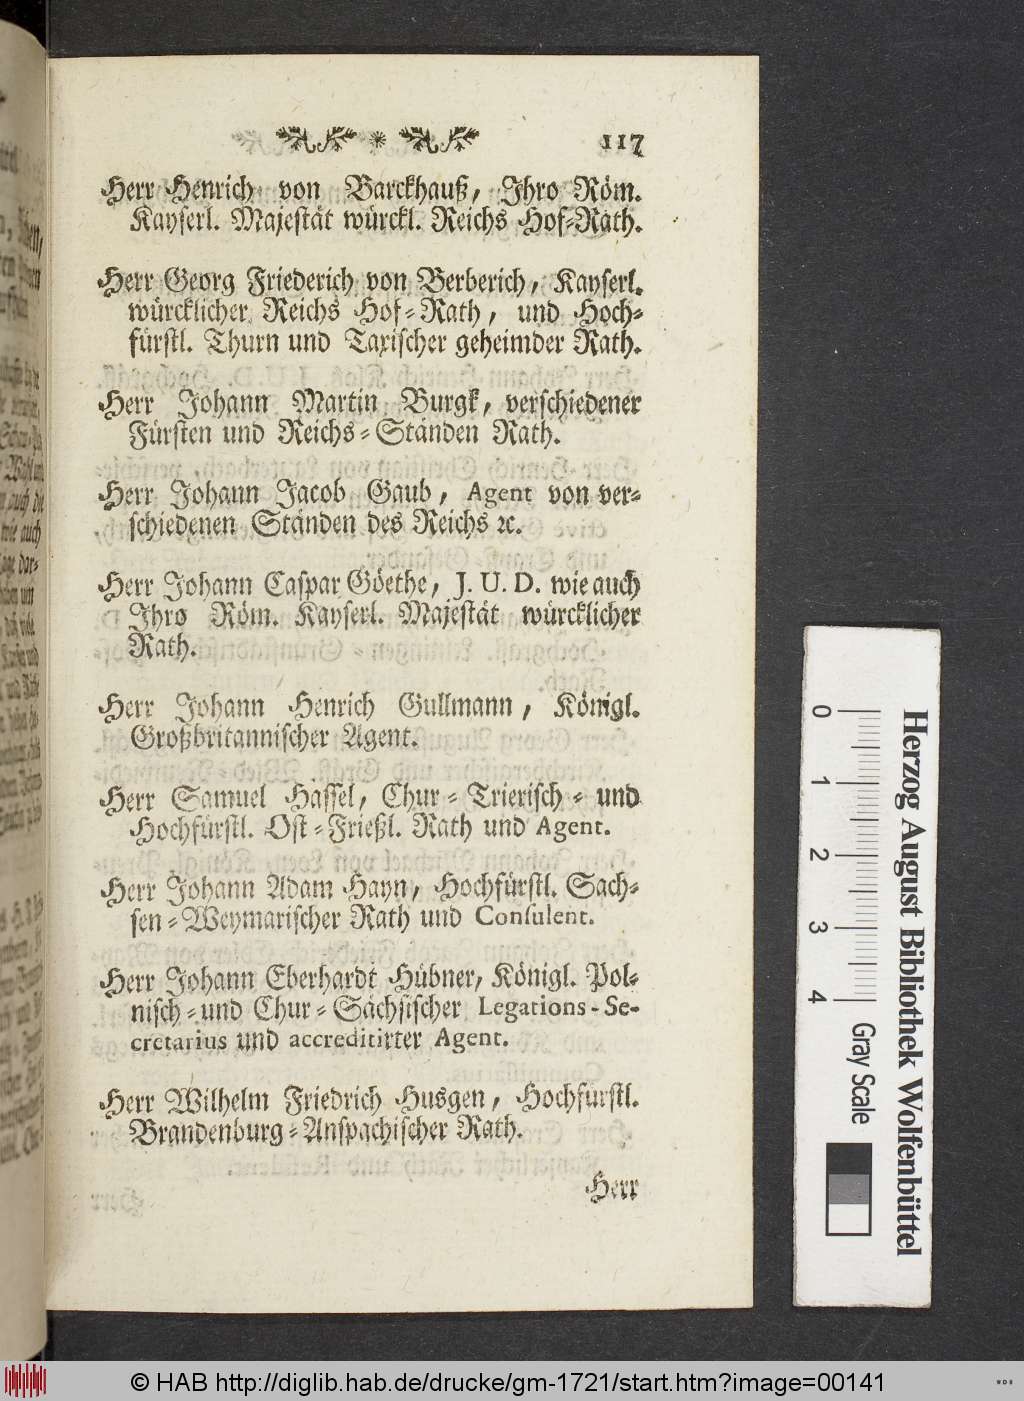 117
Herr Henrich von Barckhauß, Ihro Röm.
Kayserl. Majestät würckl. Reichs Hof-Rath.
Herr Georg Friederich von Berberich, Kayserl.
würcklicher Reichs Hof-Rath, und Hoch-
fürstl. Thurn und Taxischer geheimder Rath.
Herr Johann Martin Burgk, verschiedener
Fürsten und Reichs-Ständen Rath.
Herr Johann Jacob Gaub, Agent von ver-
schiedenen Ständen des Reichs ꝛc.
Herr Johann Caspar Göethe, J. U. D. wie auch
Ihro Röm. Kayserl. Majestät würcklicher
Rath.
Herr Johann Henrich Gullmann, Königl.
Großbritannischer Agent.
Herr Samuel Hässel, Chur-Trierisch- und
Hochfürstl. Ost-Frießl. Rath und Agent.
Herr Johann Adam Hayn, Hochfürstl. Sach-
sen-Weymarischer Rath und Consulent.
Herr Johann Eberhardt Hübner, Königl. Pol-
nisch-und Chur-Sächsischer Legations-Se-
cretarius und accreditirter Agent.
Herr Wilhelm Friedrich Husgen, Hochfürstl.
Brandenburg-Anspachischer Rath.
Herr
0 1 2 3 4
Gray Scale
Herzog August Bibliothek Wolfenbüttel
© HAB http://diglib.hab.de/drucke/gm-1721/start.htm?image=00141